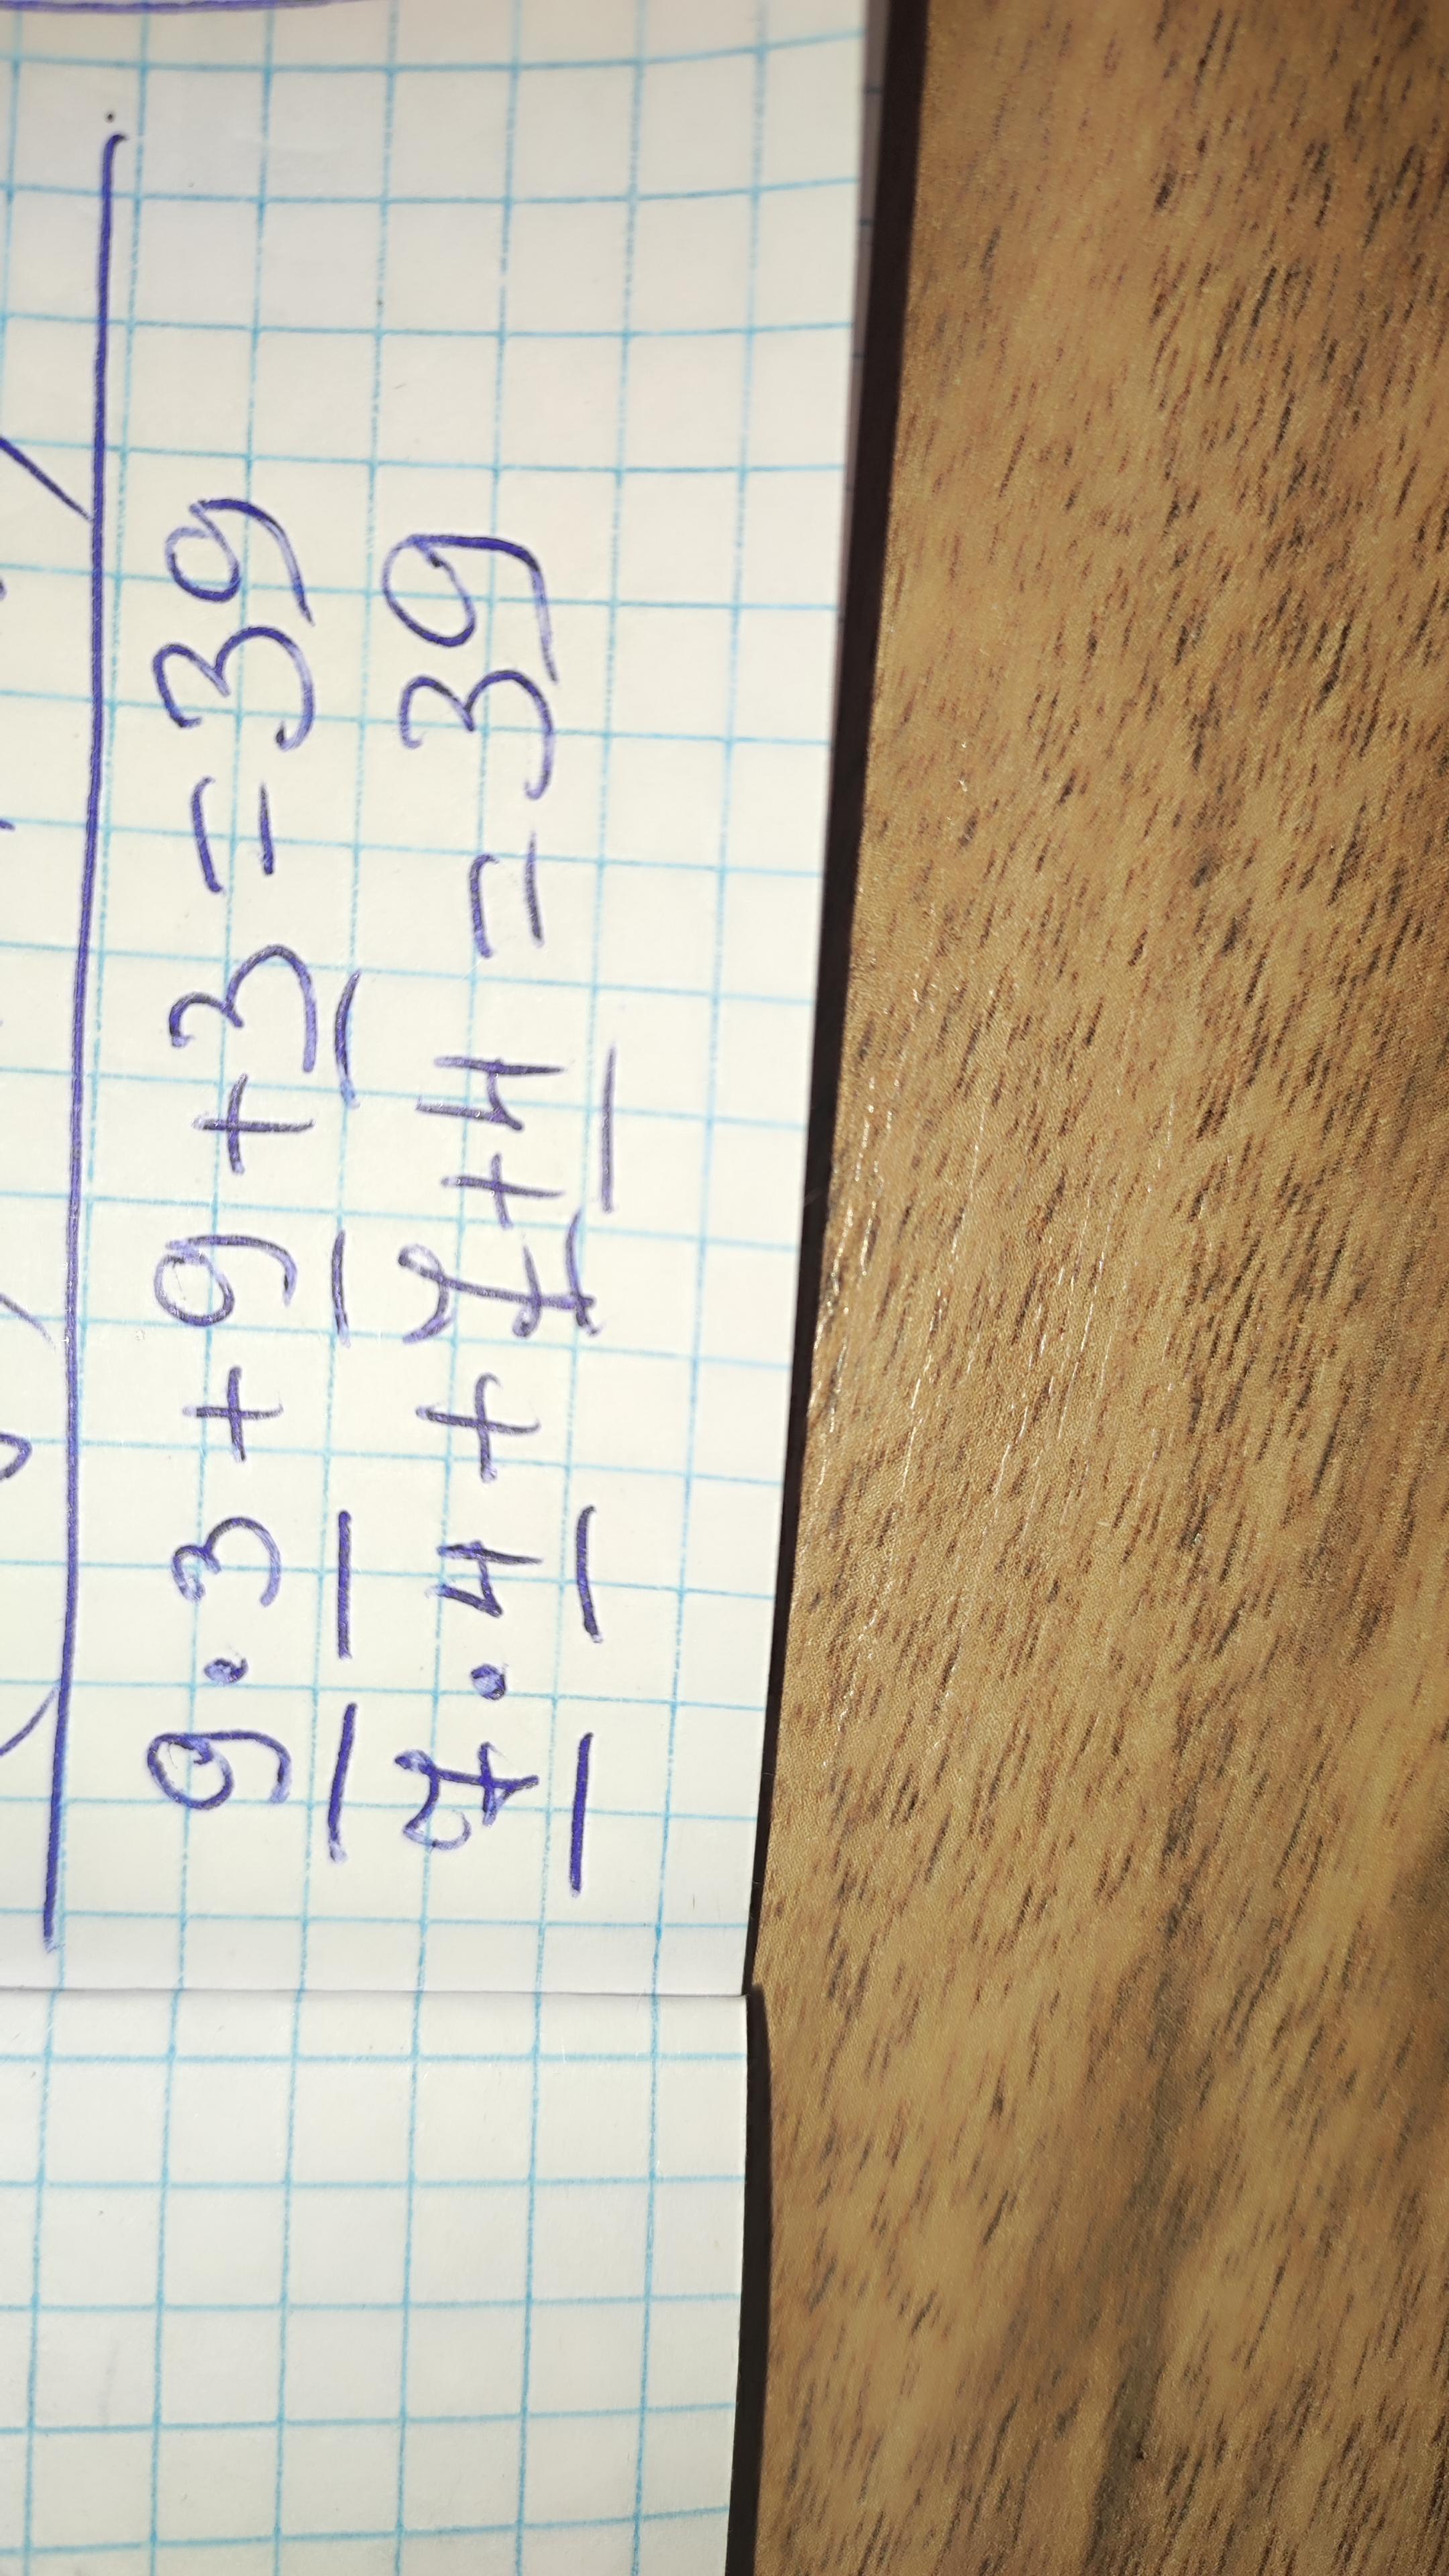 9 · 3 + 9 + 3 = 39
7 · 4 + 7 + 4 = 39